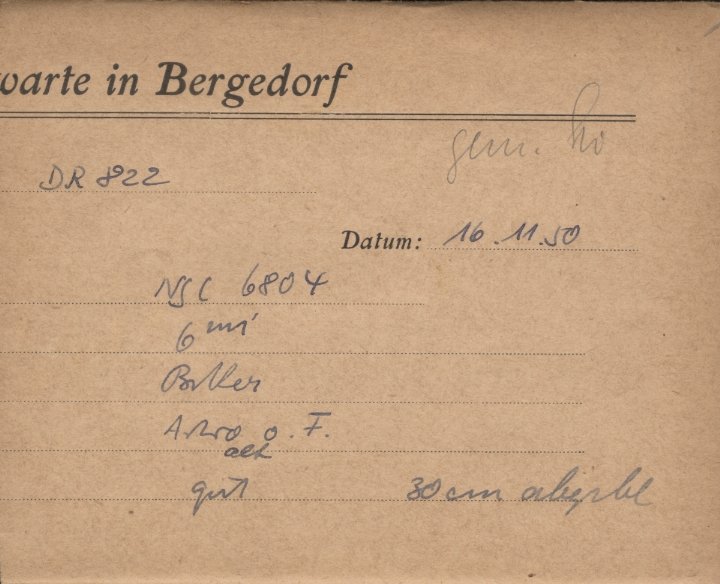 warte in Bergedorf
gem.
DR 822
Datum: 16.11.50
NGC 6804
6 mi
Astro o. F.
alt
gut 30 cm